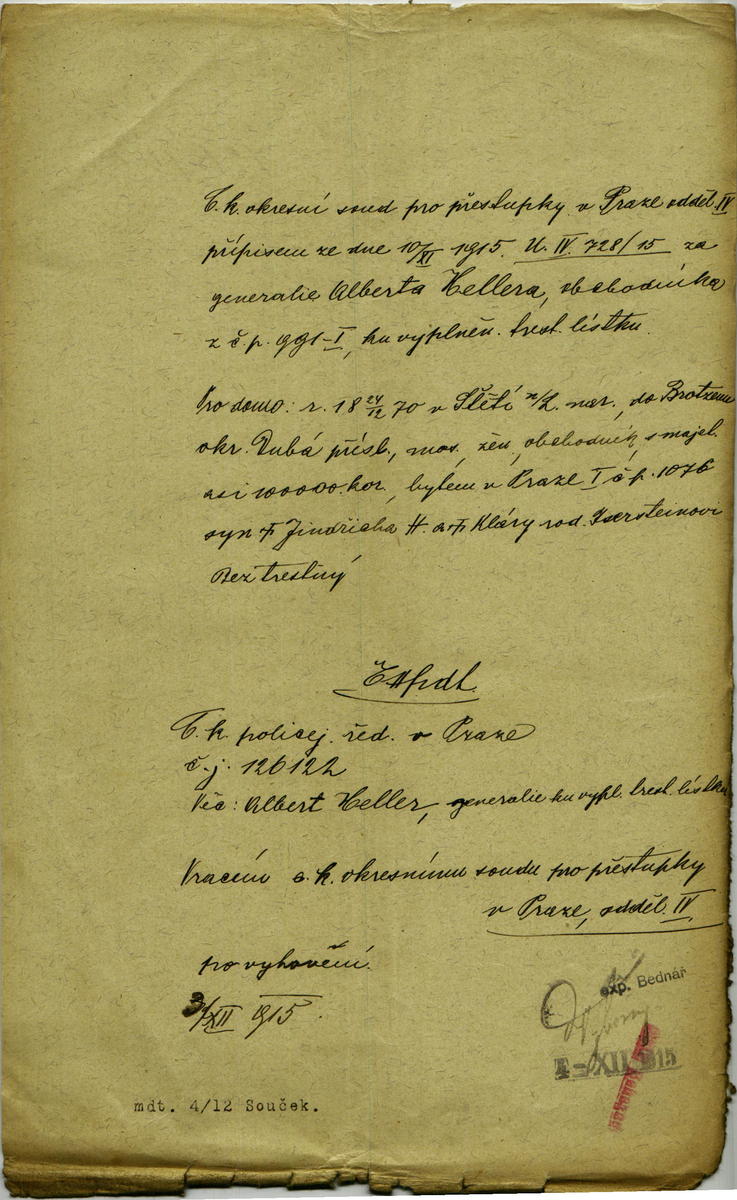 C. k. okresní soud pro přestupky v Praze odděl. IV
přípisem ze dne 10/XI 1915. U. IV. 728/15 za
generalie Alberta Hellera, obchodníka
z č. p. 991-I, ku vyplněn. trest. lístku.
Pro domo: r. 18 24/12 70 v Štětí n/L. nar., do Brotzenu
okr. Dubá přísl., mos. žen. obchodník, s majet.
asi 100000. kor., bytem v Praze I č p. 1076
syn † Jindřicha H. a † Kláry rod.
Bez trestný
C. k. policej. řed. v Praze
č. j. 126122
Věc: Albert Heller, generalie ku vypl. trest. lístku
Vrácení c. k. okresnímu soudu pro přestupky
v Praze, odděl. IV
po vyhovění.
3/XII 1915.
exp. Bednář
4-XII 1915
mdt. 4/12 Souček.